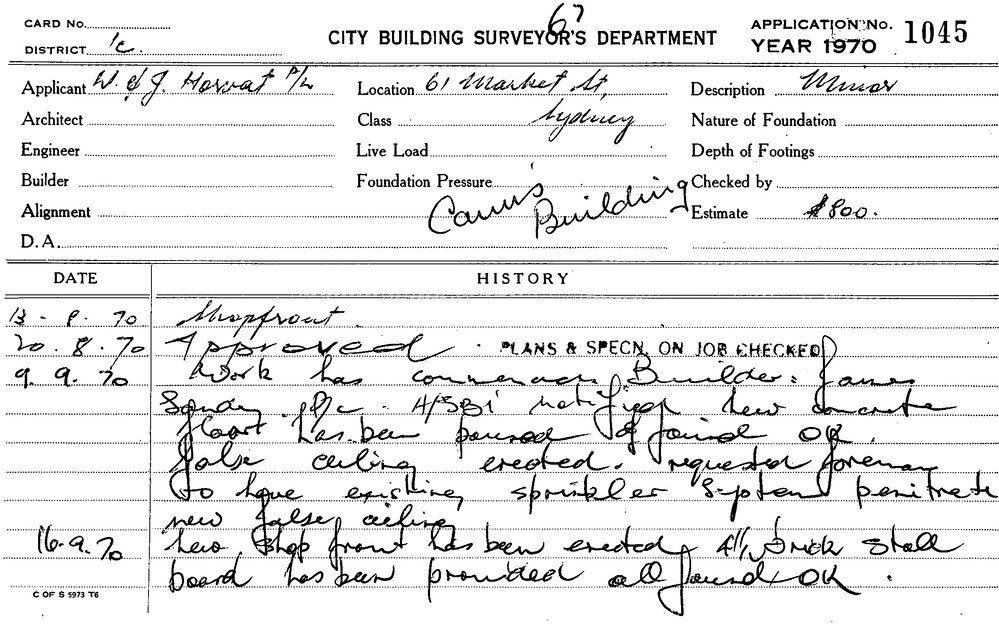 CARD No.
DISTRICT 1c.
67
CITY BUILDING SURVEYOR'S DEPARTMENT
APPLICATION No. 1045
YEAR 1970
Applicant W. & J. Horvat P/L
Location 61 Market St,
Description Minor
Architect
Class Sydney
Nature of Foundation
Engineer
Live Load
Depth of Footings
Builder
Foundation Pressure
Checked by
Alignment
Building
Estimate $800.
D.A.
DATE
HISTORY
13 - 8. 70 Shopfront.
20. 8. 70 Approved. PLANS & SPECN. ON JOB CHECKED
9. 9. 70 Work has commenced. Builder: James
A/SBI notified new concrete
floor has been poured & found OK.
false ceiling erected. requested foreman
to have existing sprinkler system penitrate
new false ceiling
16. 9. 70 new shop front has been erected, 4½ brick stall
board has been provided all found OK.
C OF S 5973 T6